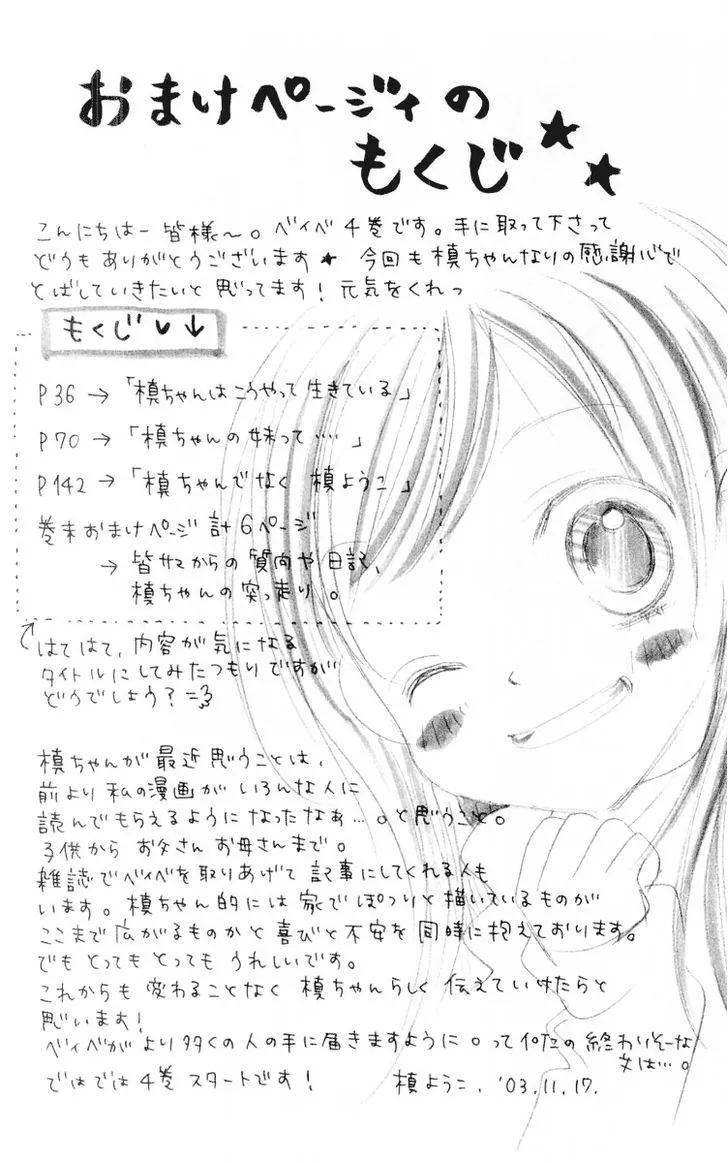 おまけページィの
もくじ★★
こんにちはー皆様～。ベイベ4巻です。手に取って下さって
どうもありがとうございます★ 今回も槙ちゃんなりの感謝心で
とばしていきたいと思ってます！元気をくれっ
もくじ♥↓
P36→「槙ちゃんはこうやって生きている」
P70→「槙ちゃんの妹って……」
P142→「槙ちゃんでなく 槙ようこ」
巻末おまけページ 計6ページ
→皆サマからの質問や日記、
槙ちゃんの突っ走り。
はてはて、内容が気になる
タイトルにしてみたつもりですが
どうでしょう？
槙ちゃんが最近思うことは、
前より私の漫画がいろんな人に
読んでもらえるようになったなぁ…。と思うこと。
子供からお父さんお母さんまで。
雑誌でベイベを取りあげて記事にしてくれる人も
います。槙ちゃん的には家でぽつりと描いているものが
ここまで広がるものかと喜びと不安を同時に抱えております。
でもとってもとってもうれしいです。
これからも変わることなく槙ちゃんらしく伝えていけたらと
思います！
ベイベがより多くの人の手に届きますように。って何だの終わりそーな
文は…。
ではでは4巻スタートです！ 槙ようこ. '03.11.17.